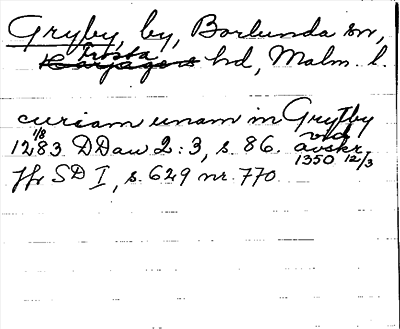 Gryby, by, Borlunda sn,
Frosta hd, Malm. l.
curiam unam in Grytby
1283 1/8 DDan 2:3, s. 86. vid avskr. 1350 12/3
Jfr SD I, s. 629 nr 770.